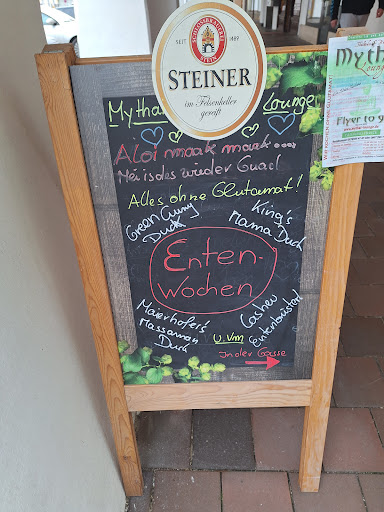 SCHLOSSBRAUEREI STEIN
SEIT 1489
STEINER
im Felsenkeller
gereift
Mythai Lounge
Aloi maak maak....
Mei is des wieder Guad
Alles ohne Glutamat!
Green Curry
Duck
King's
Mama Duck
Enten-
wochen
Maierhofers'
Massaman
Duck
Cashew
Entenbrüsterl
u.v.m
In der Gasse
Mytha
Lounge
Flyer to g